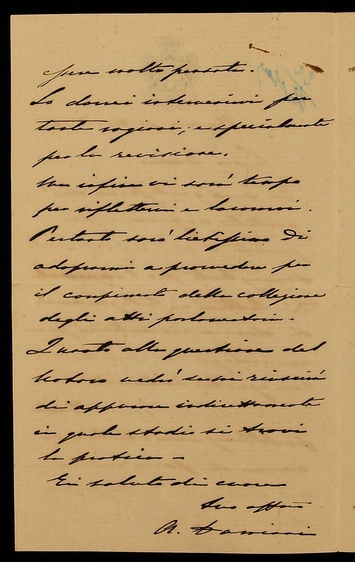 pure molto pensato.
Io dovrei intervenirvi per
tante ragioni, e specialmente
per la revisione.
Ma infine vi sarà tempo
per riflettervi e lavorarvi.
Pertanto sarò lietissimo di
adoprarmi a provvedere per
il compimento della collezione
degli atti parlamentari.
Quanto alla questione del
vedrò se mi riuscirà
di appurare indirettamente
in quale stadio si trovi
la pratica —
La saluto di cuore
Suo affmo
A. Damiani